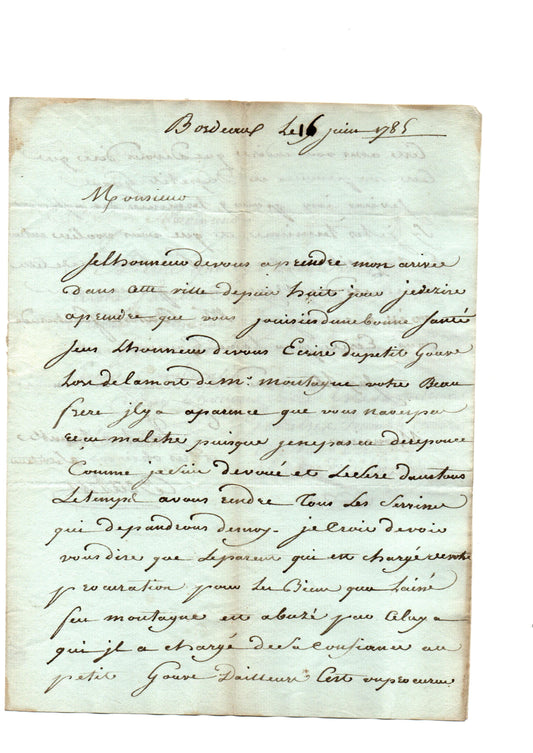 Bordeaux Le 16 juin 1785
Monsieur
Jel honneur devous aprendre mon arivée
dans cette ville depuis huit jour jedezire
aprendre que vous jouisies dune bonne santé
Jeus L honneur devous Ecrire du petit Goave
Lors de la mort de Mr. moutagne votre Beau
frere jl y a aparence que vous navez pas
recu ma letre puisque je nepas eu de reponce
Comme je suis devoué et Lesere dans tous
Le temps a vous rendre Tous Les Services
qui depandrons de moy. je Crois devoir
vous dire que Le parent qui est chargé de votre
procuration pour Les Biens qua laissé
feu moutagne en abuze par Celuy a
qui jl a chargé de sa Confiance au
petit Goave Dailleurs Cest un procureur